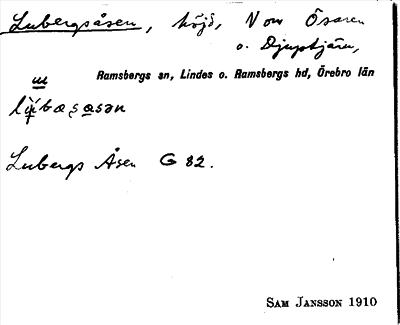 Lubergsåsen, höjd, V om Ösaren
o. Djuptjärn,
Ramsbergs sn, Lindes o. Ramsbergs hd, Örebro län
Lubergs Åsen G 82.
SAM JANSSON 1910